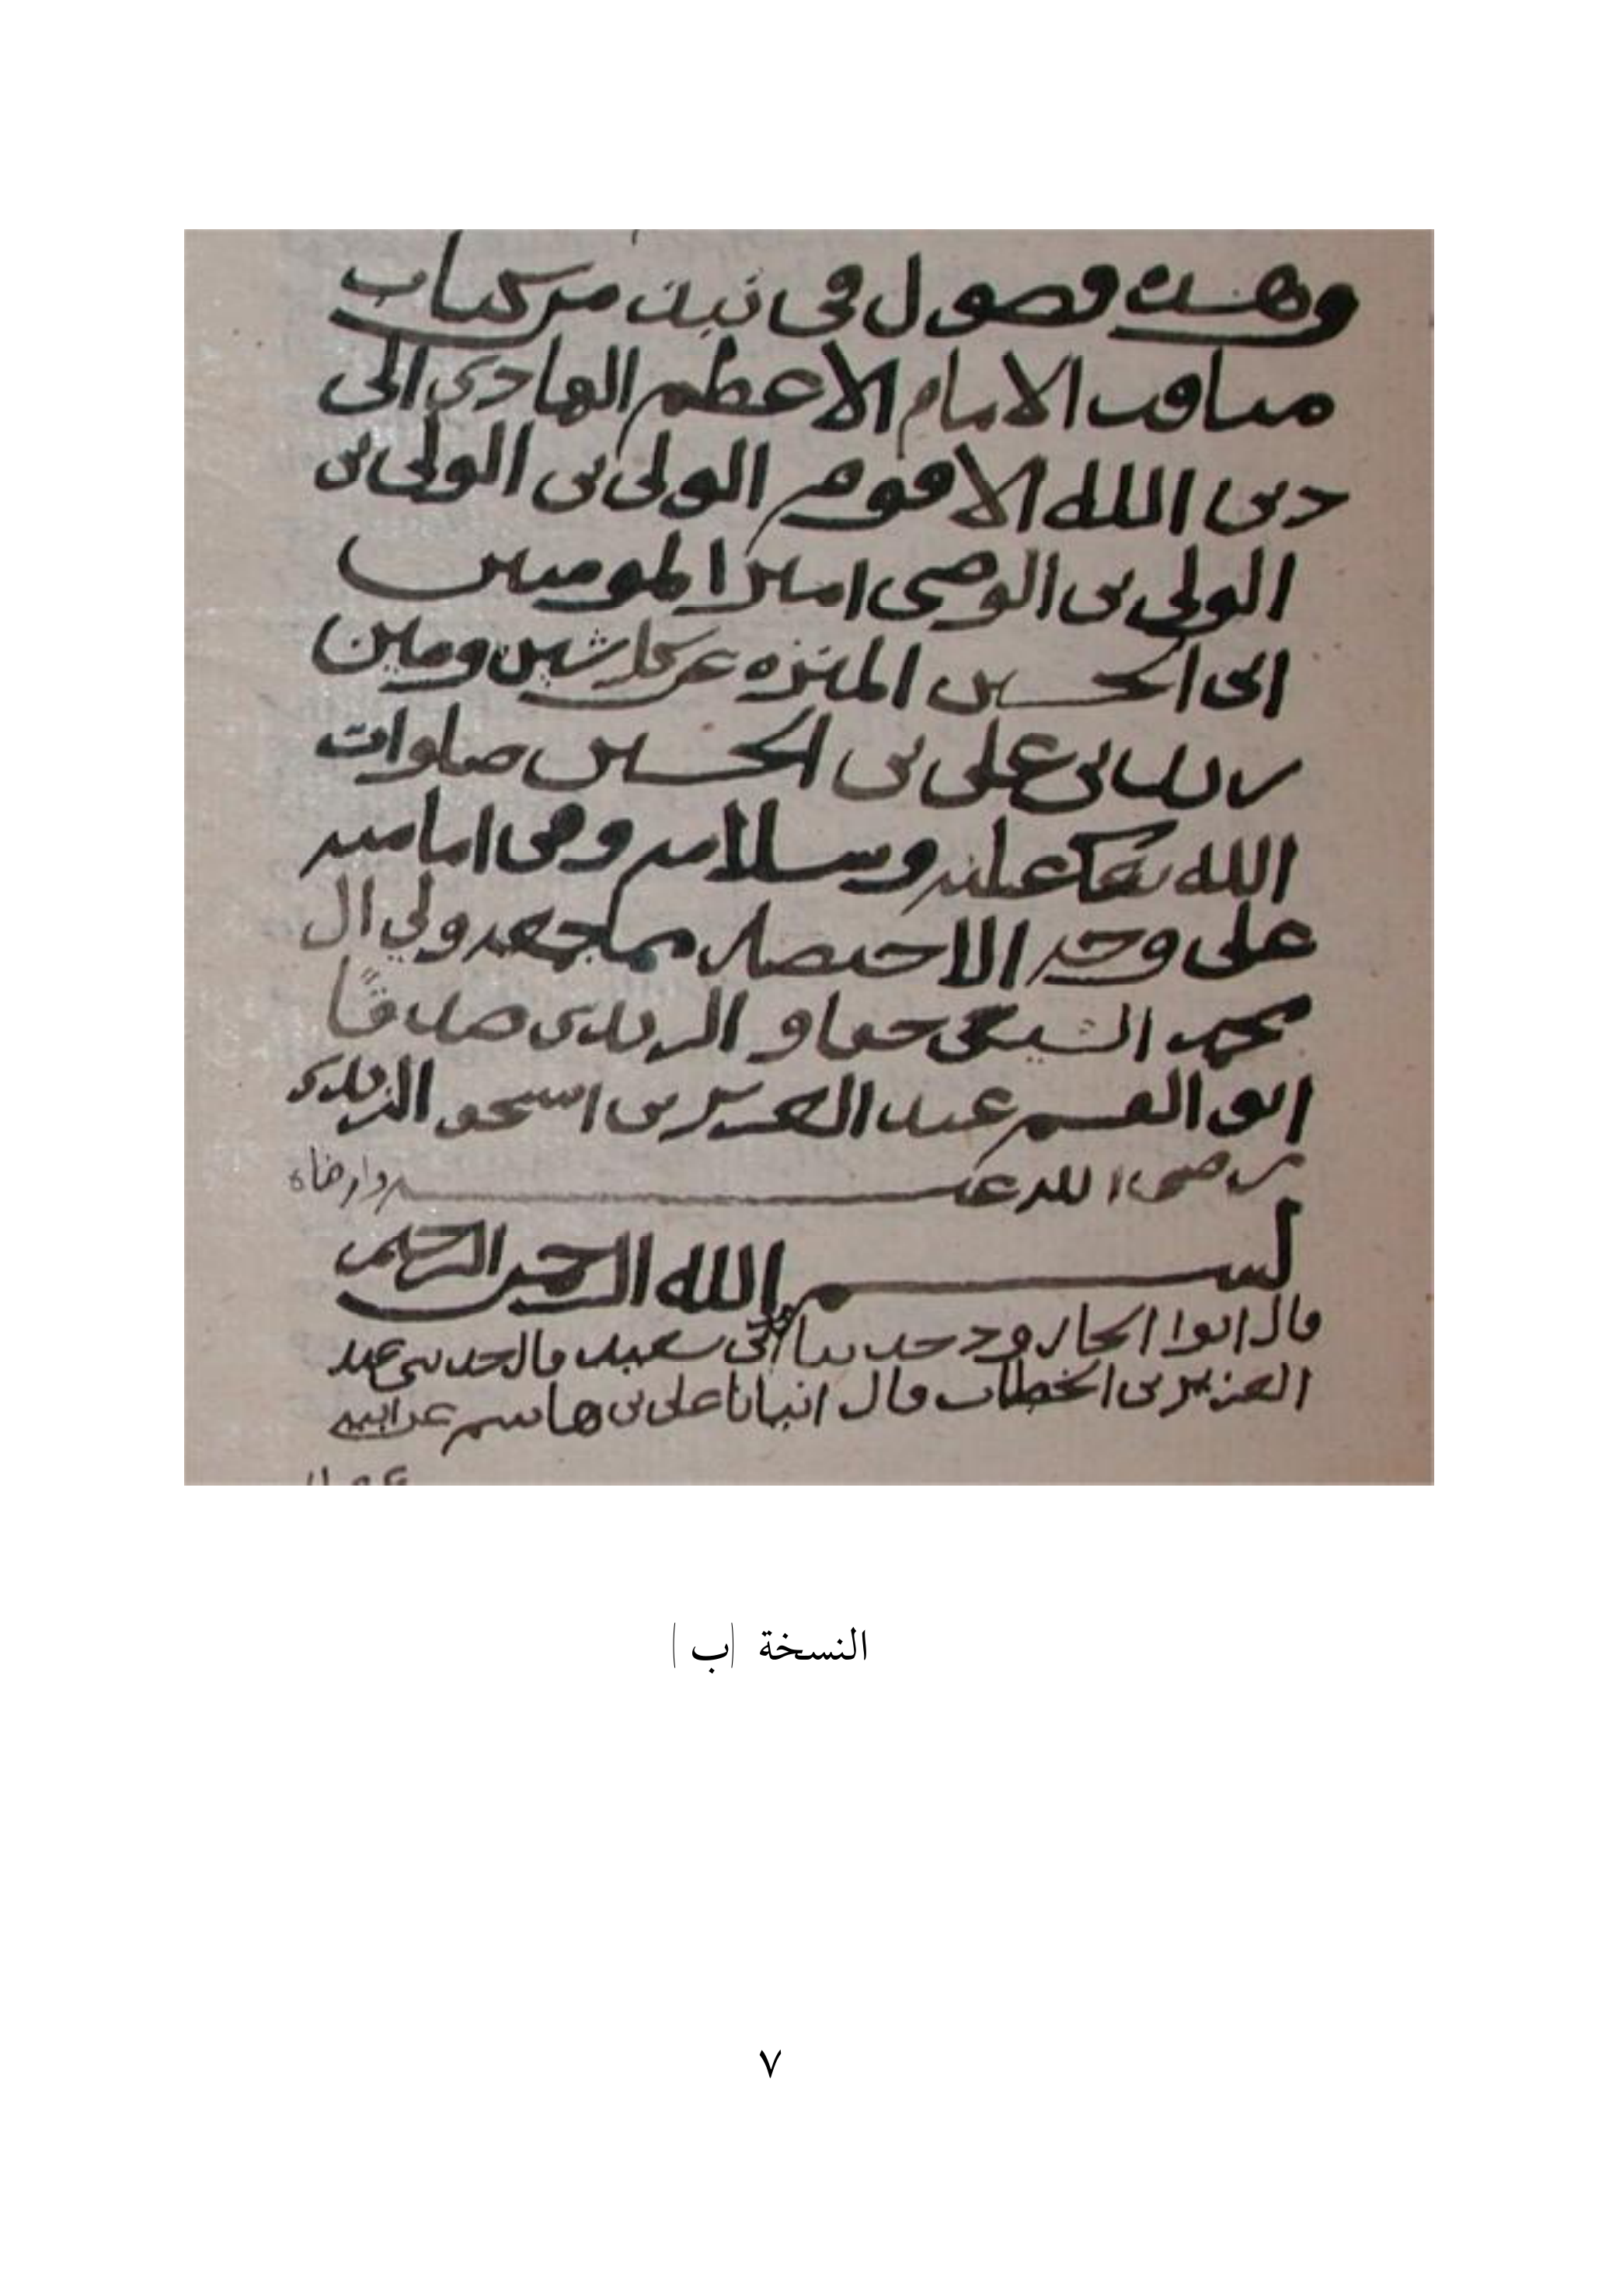 وهذه فصول في نبذ من كتاب
مناقب الامام الاعظم الهادي الى
دين الله الاقوم الولي بن الولي بن
الولي بن الوصي امير المومنين
ابي الحسين المنزه عن كل شين ومين
زيد بن علي بن الحسين صلوات
الله عليه وسلامه وهي اماميه
على وجه الاختصار مما جمعه ولي ال
محمد الشيعي حقا و الزيدي صدقًا
ابو القسم عبد العزيز بن اسحق الزيدي
رضي الله عنه وارضاه
بسم الله الرحمن الرحيم
قال ابوا الجارود حدثنا ابي سعيد قال حدثني عبد
العزيز بن الخطاب قال انبانا علي بن هاشم عن ابيه
النسخة (ب)
٧